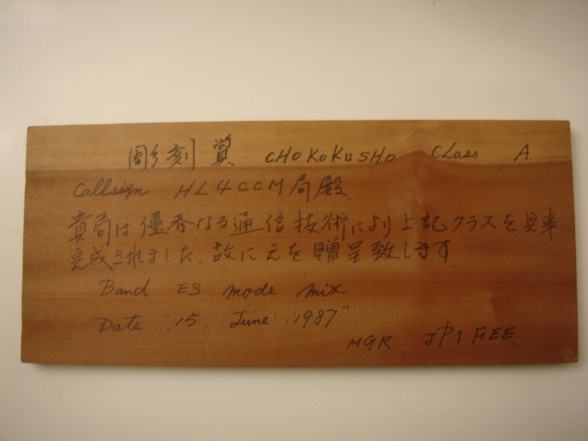 彫刻賞 CHOKOKUSHO Class A
Callsign HL4CCM局殿.
貴局は優秀なる通信技術により上記クラスを見事
完成されました.故に之を贈呈致します
Band ES mode mix
Date :15. June 1987"
MGR JP1FEE.